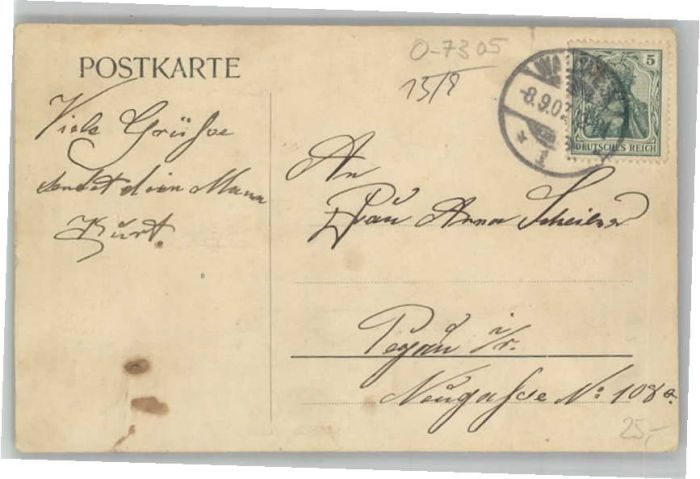 POSTKARTE
0-7305
15/9
5
DEUTSCHES REICH
-8.9.07
1
Viele Grüße
sendet dein Mann
Kurt.
An
Frau Anna
Pegau i/r.
Neugasse No: 108a
25,-